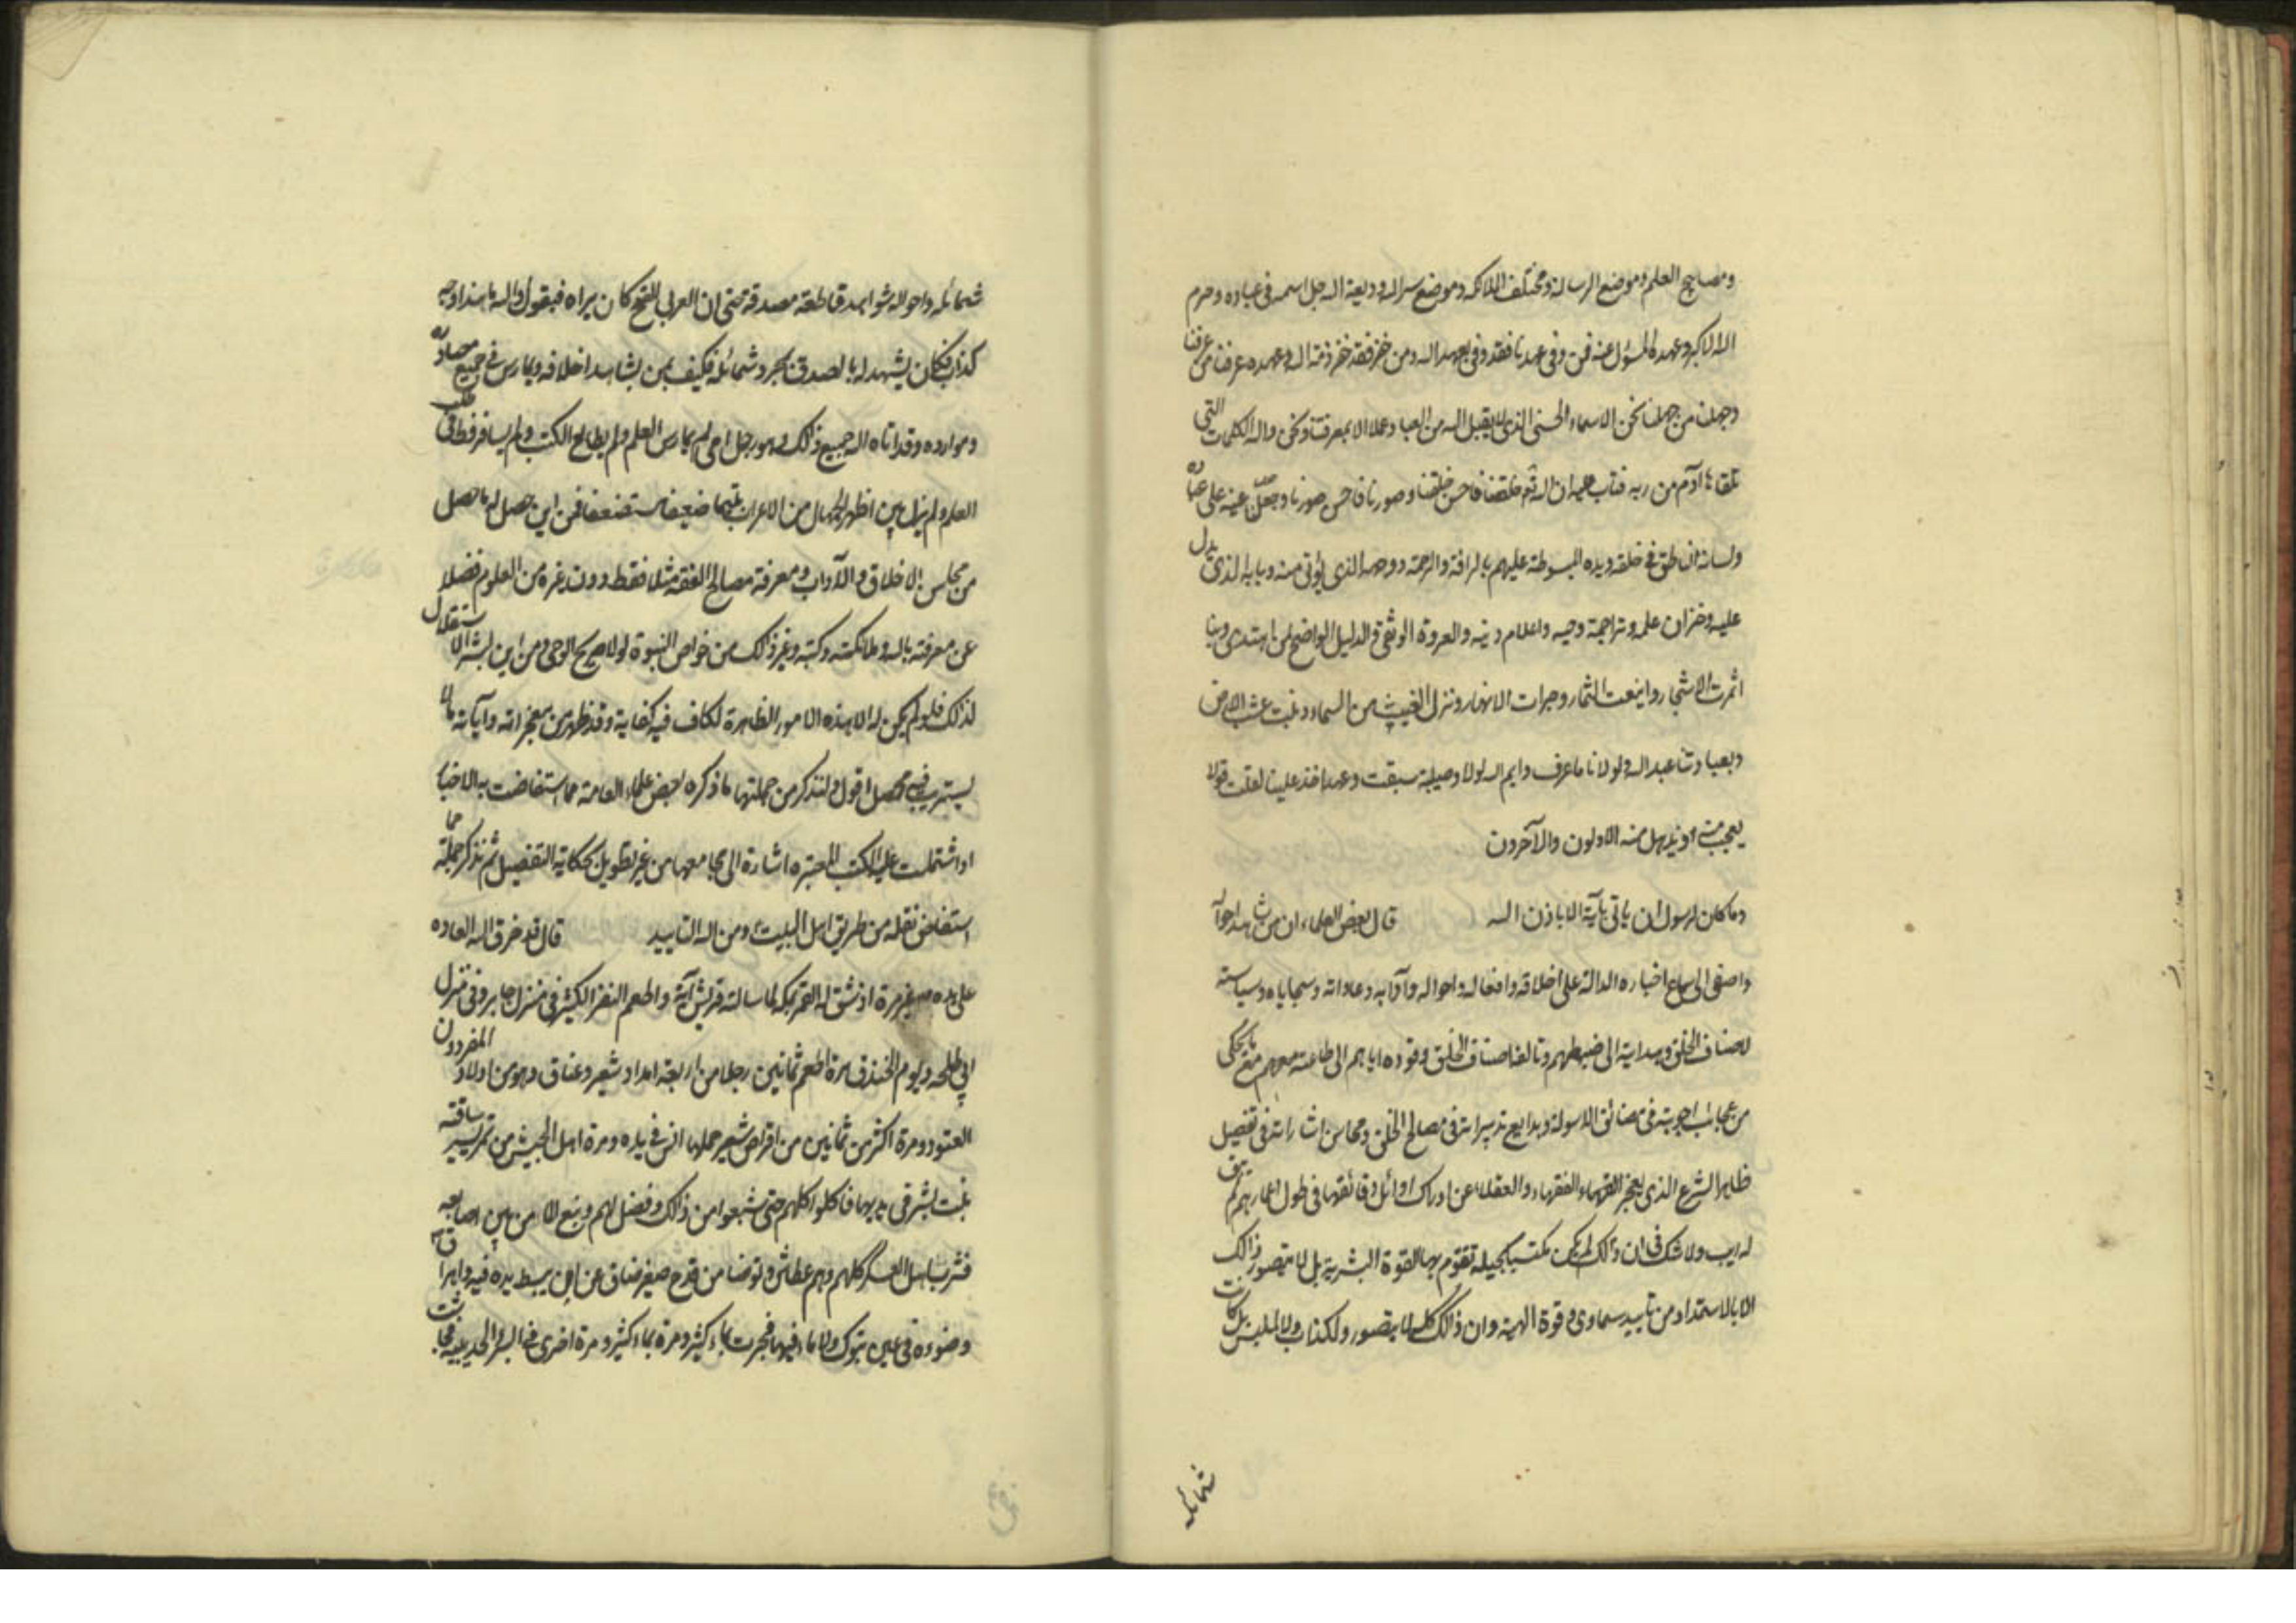 ومصابيح العلم وموضع الرسالة ومختلف الملائكه وموضع سر الله ووديعة الله جل اسمه فى عباده وحرم
الله الاكبر وعهده المسؤل عنه فمن وفى بعهدنا فقد وفى بعهد الله ومن خفر فقد خفر ذمة الله وعهده عرفنا من عرفنا
وجهلنا من جهلنا نحن الاسماء الحسنى الذى لا يقبل الله من العباد عملا الا بمعرفتنا ونحن والله الكلمات التى
تلقاها آدم من ربه فتاب عليه ان الله تع خلقنا فاحسن خلقنا وصورنا فاحسن صورنا وجعلنا عينه على عباده
ولسانه الناطق فى خلقه ويده المبسوطة عليهم بالرافة والرحمة ووجهه الذى يؤتى منه وبابه الذى يدل
عليه وخزان علمه وتراجمة وحيه واعلام دينه والعروة الوثقى والدليل الواضح لمن اهتدى وبنا
اثمرت الاشجار واينعت الثمار وجرات الانهار ونزل الغيث من السماء ونبت عشب الارض
وبعبادتنا عبد الله ولولانا ما عرف وايم الله لولا وصية سبقت وعهد اخذ علينا لقلت قولا
يعجب منه او يذهل منه الاولون والآخرون
وما كان لرسول ان ياتى بآية الا باذن الله قال بعض العلماء ان من شاهد احواله
واصغى الى سماع اخباره الدالة على اخلاقه وافعاله واحواله وآدابه وعاداته وسجاياه وسياسته
لاصناف الخلق وهدايته الى ضبطهم وتالفه اصناف الخلق وقوده اياهم الى طاعته مع ما يحكى
من عجائب اجوبته فى مضائق الاسولة وبدايع تدبيراته فى مصالح الخلق ومحاسن اشاراته فى تفصيل
ظاهر الشرع الذى يعجز الفقهاء والعقلاء عن ادراك اوائل دقائقها فى طول اعمارهم لم يبق
له ريب ولا شك فى ان ذلك لم يكن مكتسبا بحيلة تقوم بها القوة البشرية بل لا يتصور ذالك
الا بالاستمداد من تاييد سماوى وقوة الهية وان ذالك كله لا يتصور ولكذاب ولا لملبس بل كانت
شمائله
شمائله واحواله شواهد قاطعة مصدقة حتى ان العربى القح كان يراه فيقول والله ما هذا وجه
كذاب فكان يشهد له بالصدق بمجرد شمائله فكيف بمن يشاهد اخلاقه ويمارس فى جميع مصادره
وموارده وقد اتاه الله جميع ذلك وهو رجل امى لم يمارس العلم ولم يطالع الكتب ولم يسافر قط فى طلب
العلم ولم يزل بين اظهر الجهال من الاعراب يتيما ضعيفا مستضعفا فمن اين حصل له ما حصل
من محاسن الاخلاق والآداب ومعرفة مصالح الفقه مثلا فقط دون غيره من العلوم فضلا
عن معرفته بالله وملائكته وكتبه وغير ذالك من خواص النبوة لولا صريح الوحى ومن اين لبشر الاستقلال
لذلك فلو لم يكن له الا هذه الامور الظاهرة لكان فيه كفاية وقد ظهر من معجزاته وآياته ما لا
يستريب فيه محصل اقول ولنذكر من جملتها ما ذكره بعض علماء العامة مما استفاضت به الاخبار
او اشتملت عليه الكتب المعتبره اشارة الى مجامعها من غير تطويل بحكاية التفصيل ثم نذكر جملة مما
استفاض نقله من طريق اهل البيت ع ومن الله التاييد قال قد خرق الله العاده
على يده ص غير مرة اذ شق له القمر بمكة لما سالته قريش آية واطعم النفر الكثير فى منزل جابر وفى منزل
ابى طلحه ويوم الخندق مرة اطعم ثمانين رجلا من اربعة امداد شعير وعناق وهو من اولاد
المعز دون
العتود ومرة اكثر من ثمانين من اقراص شعير حملها انس فى يده ومرة اهل الجيش من تمر يسير ساقته
بنت بشر فى يديها فاكلوا كلهم حتى شبعوا من ذالك وفضل لهم ونبع الماء من بين اصابعه
فشرب اهل العسكر كلهم وهم عطاش وتوضا من قدح صغير ضاق عن ان يبسط يده فيه واهراق ص
وضوءه فى عين تبوك ولا ماء فيها فجرت بماء كثير ومرة اخرى فى البئر الحديبيه فجاشت